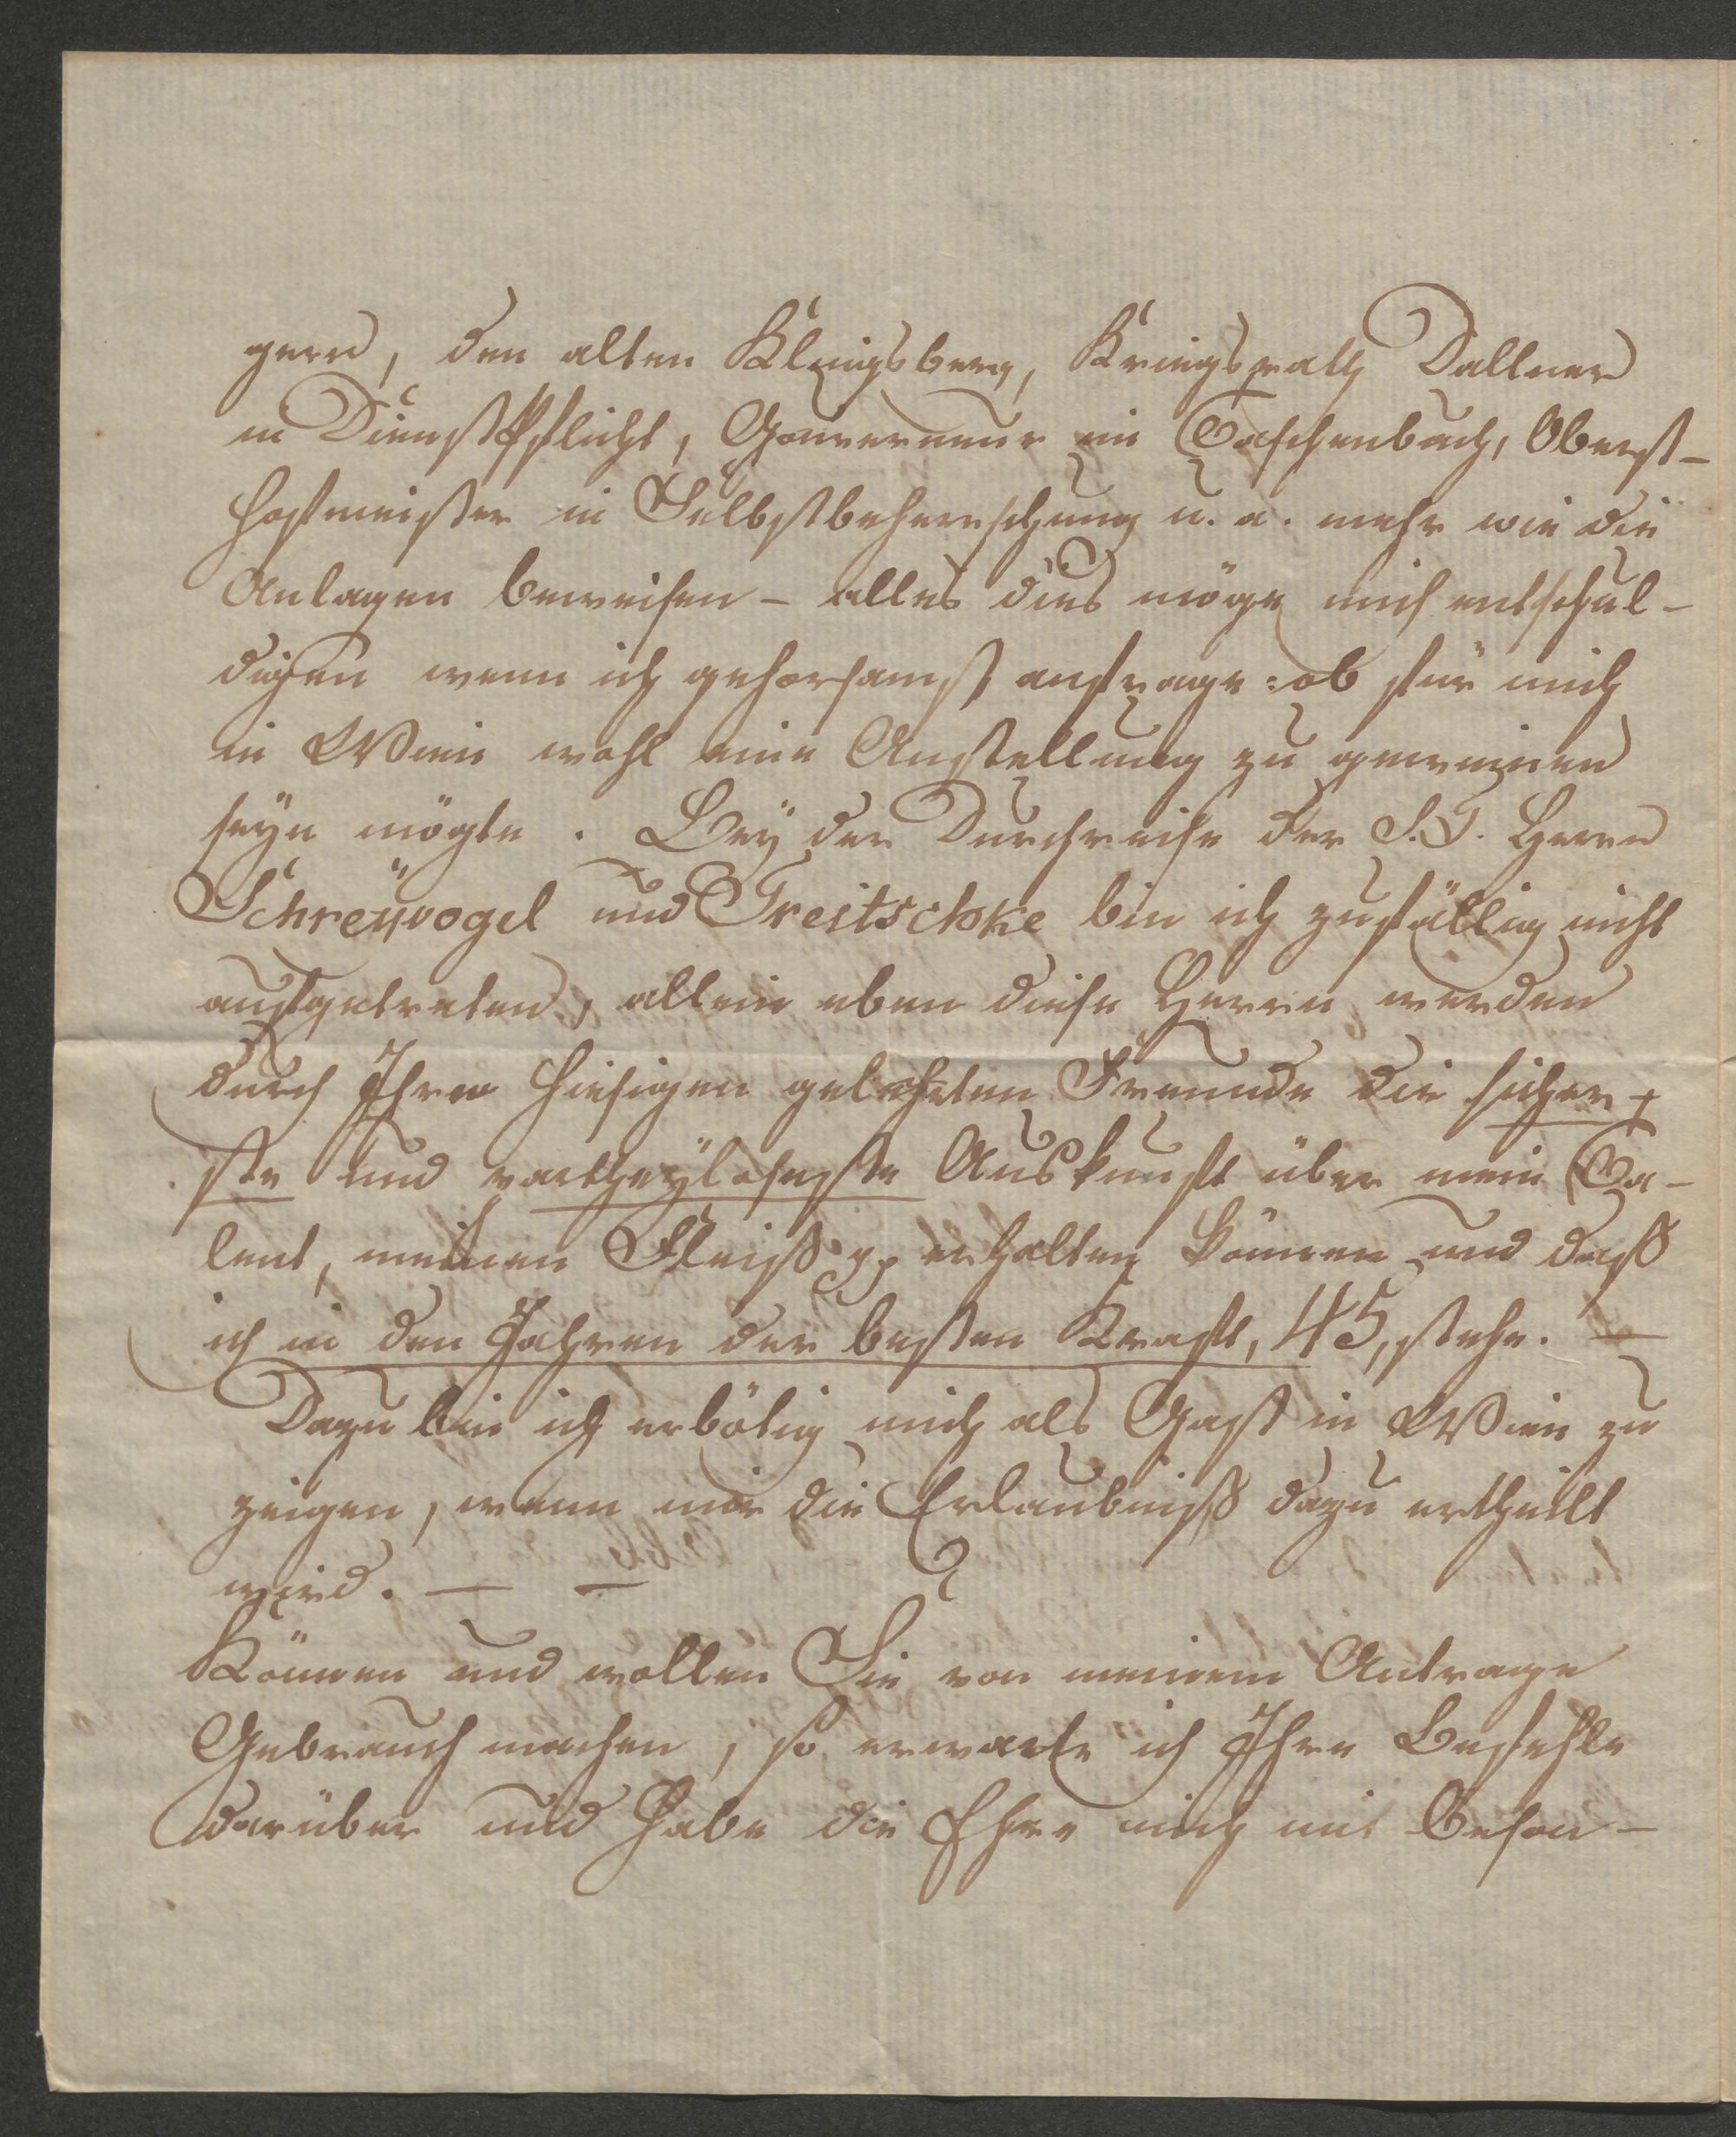 gern, den alten Klingsberg, Kriegsrath Dallner
in Dienstpflicht, Gouverneur im Taschenbuch, Oberst-
hofmeister in Selbstbeherrschung u. a. mehr wie die
Anlagen beweisen – alles dies möge mich entschul-
digen wenn ich gehorsamst anfrage: ob für mich
in Wien wohl eine Anstellung zu gewinnen
seyn mögte. Bey der Durchreise der S.T. Herrn
Schreÿvogel und Treitschke bin ich zufällig nicht
aufgetreten, allein eben diese Herrn werden
durch Ihre hiesigen gelehrten Freunde die sicher-
ste und partheÿloseste Auskunft über mein Ta-
lent, meinen Fleiß pp erhalten können und daß
ich in den Jahren der besten Kraft, 45, stehe. –
Dazu bin ich erbötig mich als Gast in Wien zu
zeigen, wenn mir die Erlaubniß dazu ertheilt
wird. – –
Können und wollen Sie von meinem Antrage
Gebrauch machen, so erwarte ich Ihre Befehle
darüber und habe die Ehre mich mit beson-